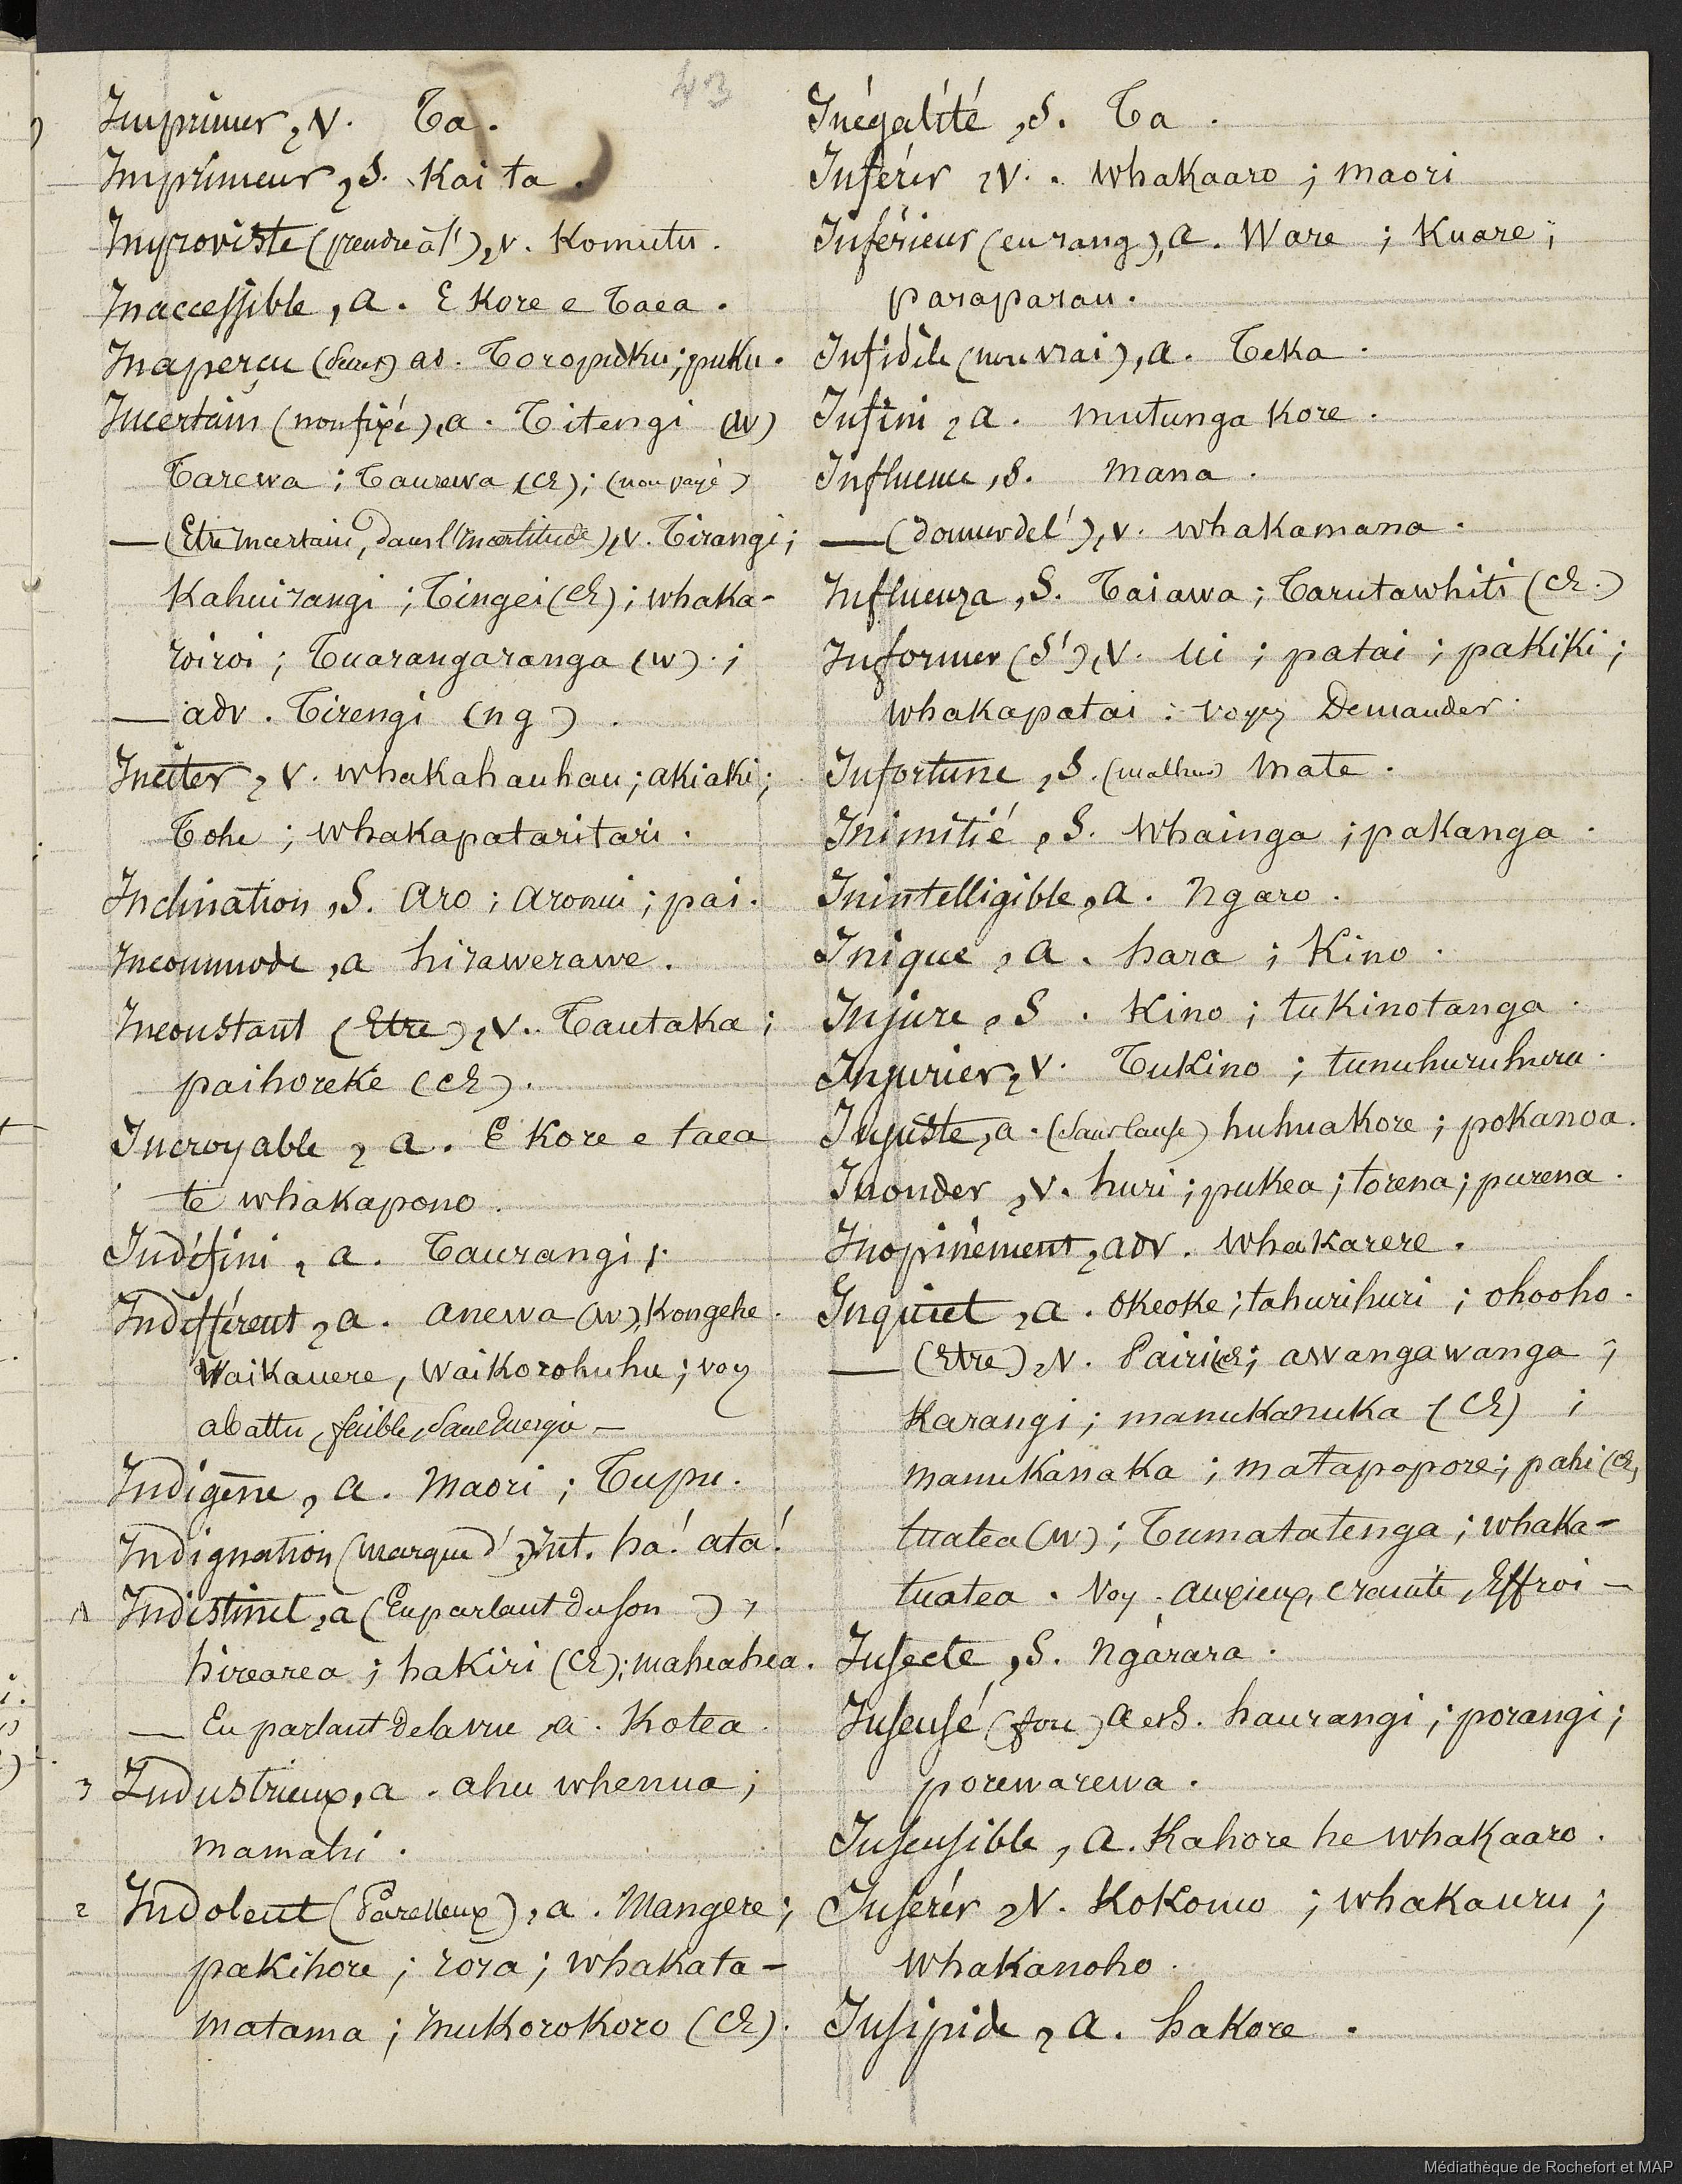 43
Imprimer, v. Ta.
Imprimeur, S. Kai ta.
Improviste (prendre à l'), v. Komutu.
Inaccessible, a. E Kore e Taea.
Inaperçu ad. Toropuku; puku.
Incertain (non fixé), a. Titengi (W)
Tarewa; Taurewa (Cl); (non payé)
— (Etre Incertain, dans l'Incertitude), v. Tirangi;
Kahuirangi; Tingei (Cl); whaka-
roiroi; Tuarangaranga (w).;
— adv. Tirengi (ng).
Inciter, v. whakahauhau; akiaki;
Tohe; whakapataritari.
Inclination, S. Aro; Aronui; pai.
Incommode, a hirawerawe.
Inconstant (Etre), v. Tautaka;
paihoreke (Cl).
Incroyable, a. E Kore e taea
te whakapono.
Indéfini, a. Taurangi;.
Indifférent, a. anewa (W), Kongehe.
Waikauere, Waikorohuhu; voy
abattu, faible, Sans Energie —
Indigène, a. Maori; Tupu.
Indignation (marque d'), Int. ha! ata!
1 Indistinct, a (En parlant du son),
hirearea; hakiri (Cl); maheahea.
— En parlant de la vue, a. Kotea.
3 Industrieux, a. ahu whenua;
mamahi.
2 Indolent (Paresseux), a. Mangere;
pakihore; rora; whakata-
matama; Mukorokoro (Cl).
Inégalité, S. Ta.
Inférer, v. whakaaro; maori
Inférieur (en rang), a. Ware; Kuare;
paraparau.
Infidèle (non vrai), a. Teka.
Infini, a. mutunga Kore.
Influence, S. Mana.
— (donner de l'), v. whakamana.
Influenza, S. Taiawa; Tarutawhiti (Cl.)
Informer (S'), v. Ui; patai; pakiki;
whakapatai: voyez Demander.
Infortune, S. (malheur) Mate.
Inimitié, S. Whainga; pakanga.
Inintelligible, a. Ngaro.
Inique, a. hara; Kino.
Injure, S. Kino; tukinotanga.
Injurier, v. Tukino; tunuhuruhuru.
Injuste, a. (Sans Cause) huhuakore; pokanoa.
Inonder, v. huri; pukea; torena; purena.
Inopinément, adv. whakarere.
Inquiet, a. Okeoke; tahurihuri; ohooho.
— (Etre), v. Pairi (Cl); awangawanga;
Karangi; manukanuka (Cl);
manukanaka; matapopore; pahi (Cl,
tuatea (W); Tumatatenga; whaka-
tuatea. Voy. Anxieux, crainte, Effroi —
Insecte, S. Ngarara.
Insensé (fou) a et S. haurangi; porangi;
porewarewa.
Insensible, a. Kahore he whakaaro.
Insérer, v. Kokomo; whakauru;
whakanoho.
Insipide, a. hakore.
Médiathèque de Rochefort et MAP